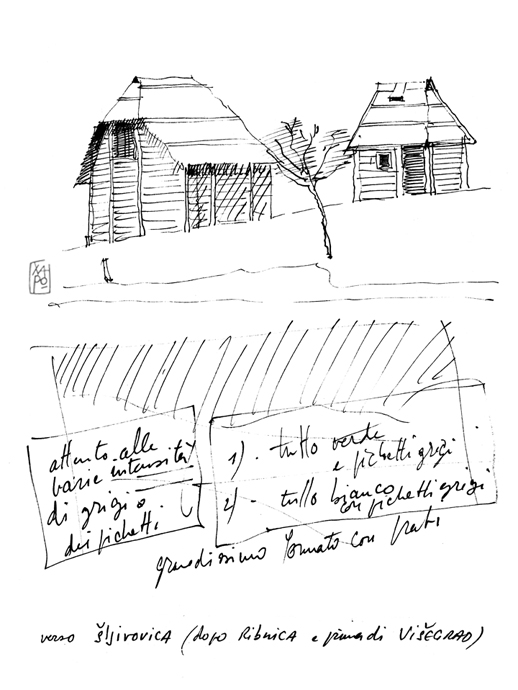 XA
PO
attento alle
varie intensità
di grigio
dei pichetti
1) - tutto verde
e pichetti grigi
2) - tutto bianco
con pichetti grigi
grandissimo formato con prati
verso Šljivovica (dopo Ribnica e prima di VIŠEGRAD)